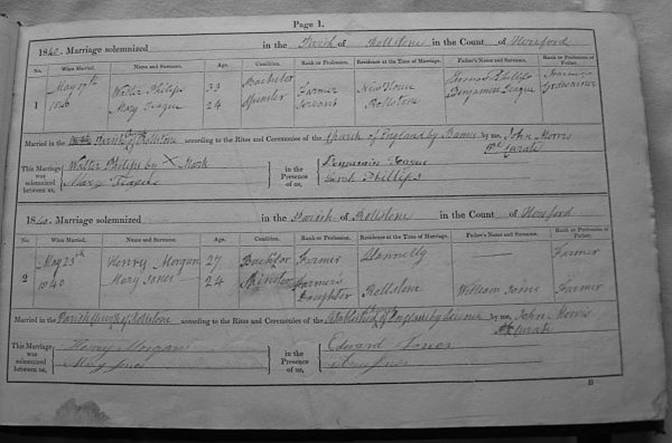 Page 1.
1840. Marriage solemnized in the Parish of Rollstone in the Count of Hereford
No. When Married. Name and Surname. Age. Condition. Rank or Profession. Residence at the Time of Marriage. Father's Name and Surname. Rank or Profession of Father.
May 19th Bachelor Thomas Phillips
1 Walter Philips 33 Farmer New House
1840 Mary Teague 24 Spinster Servant Rollstone Benjamin Teague
Married in the Parish Church of Rollstone according to the Rites and Ceremonies of the Church of England by Banns by me, John Morris
Curate
This Marriage was solemnized between us, Walter Philips by X Mark in the Presence of us, Benjamin Teague
Mary Teague Sarah Phillips
1840. Marriage solemnized in the Parish of Rollstone in the Count of Hereford
No. When Married. Name and Surname. Age. Condition. Rank or Profession. Residence at the Time of Marriage. Father's Name and Surname. Rank or Profession of Father.
May 23th Henry Morgan 27 Bachelor Farmer Llannelly — Farmer
2 1840 Mary Jones 24 Spinster Farmer's Daughter Rollstone William Joins Farmer
Married in the Parish Church of Rollstone according to the Rites and Ceremonies of the Established Ch of England by licence by me, John Morris
Curate
This Marriage was solemnized between us, Henry Morgan in the Presence of us, Edward Jones
Mary Jones Jones
B